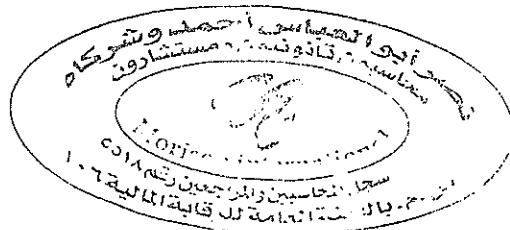 نصر أبو العباس أحمد وشركاه
محاسبون قانونيون ومستشارون
Morison International
سجل المحاسبين والمراجعين رقم ٥٥١٨
بالهيئة العامة للرقابة المالية ١٠٦